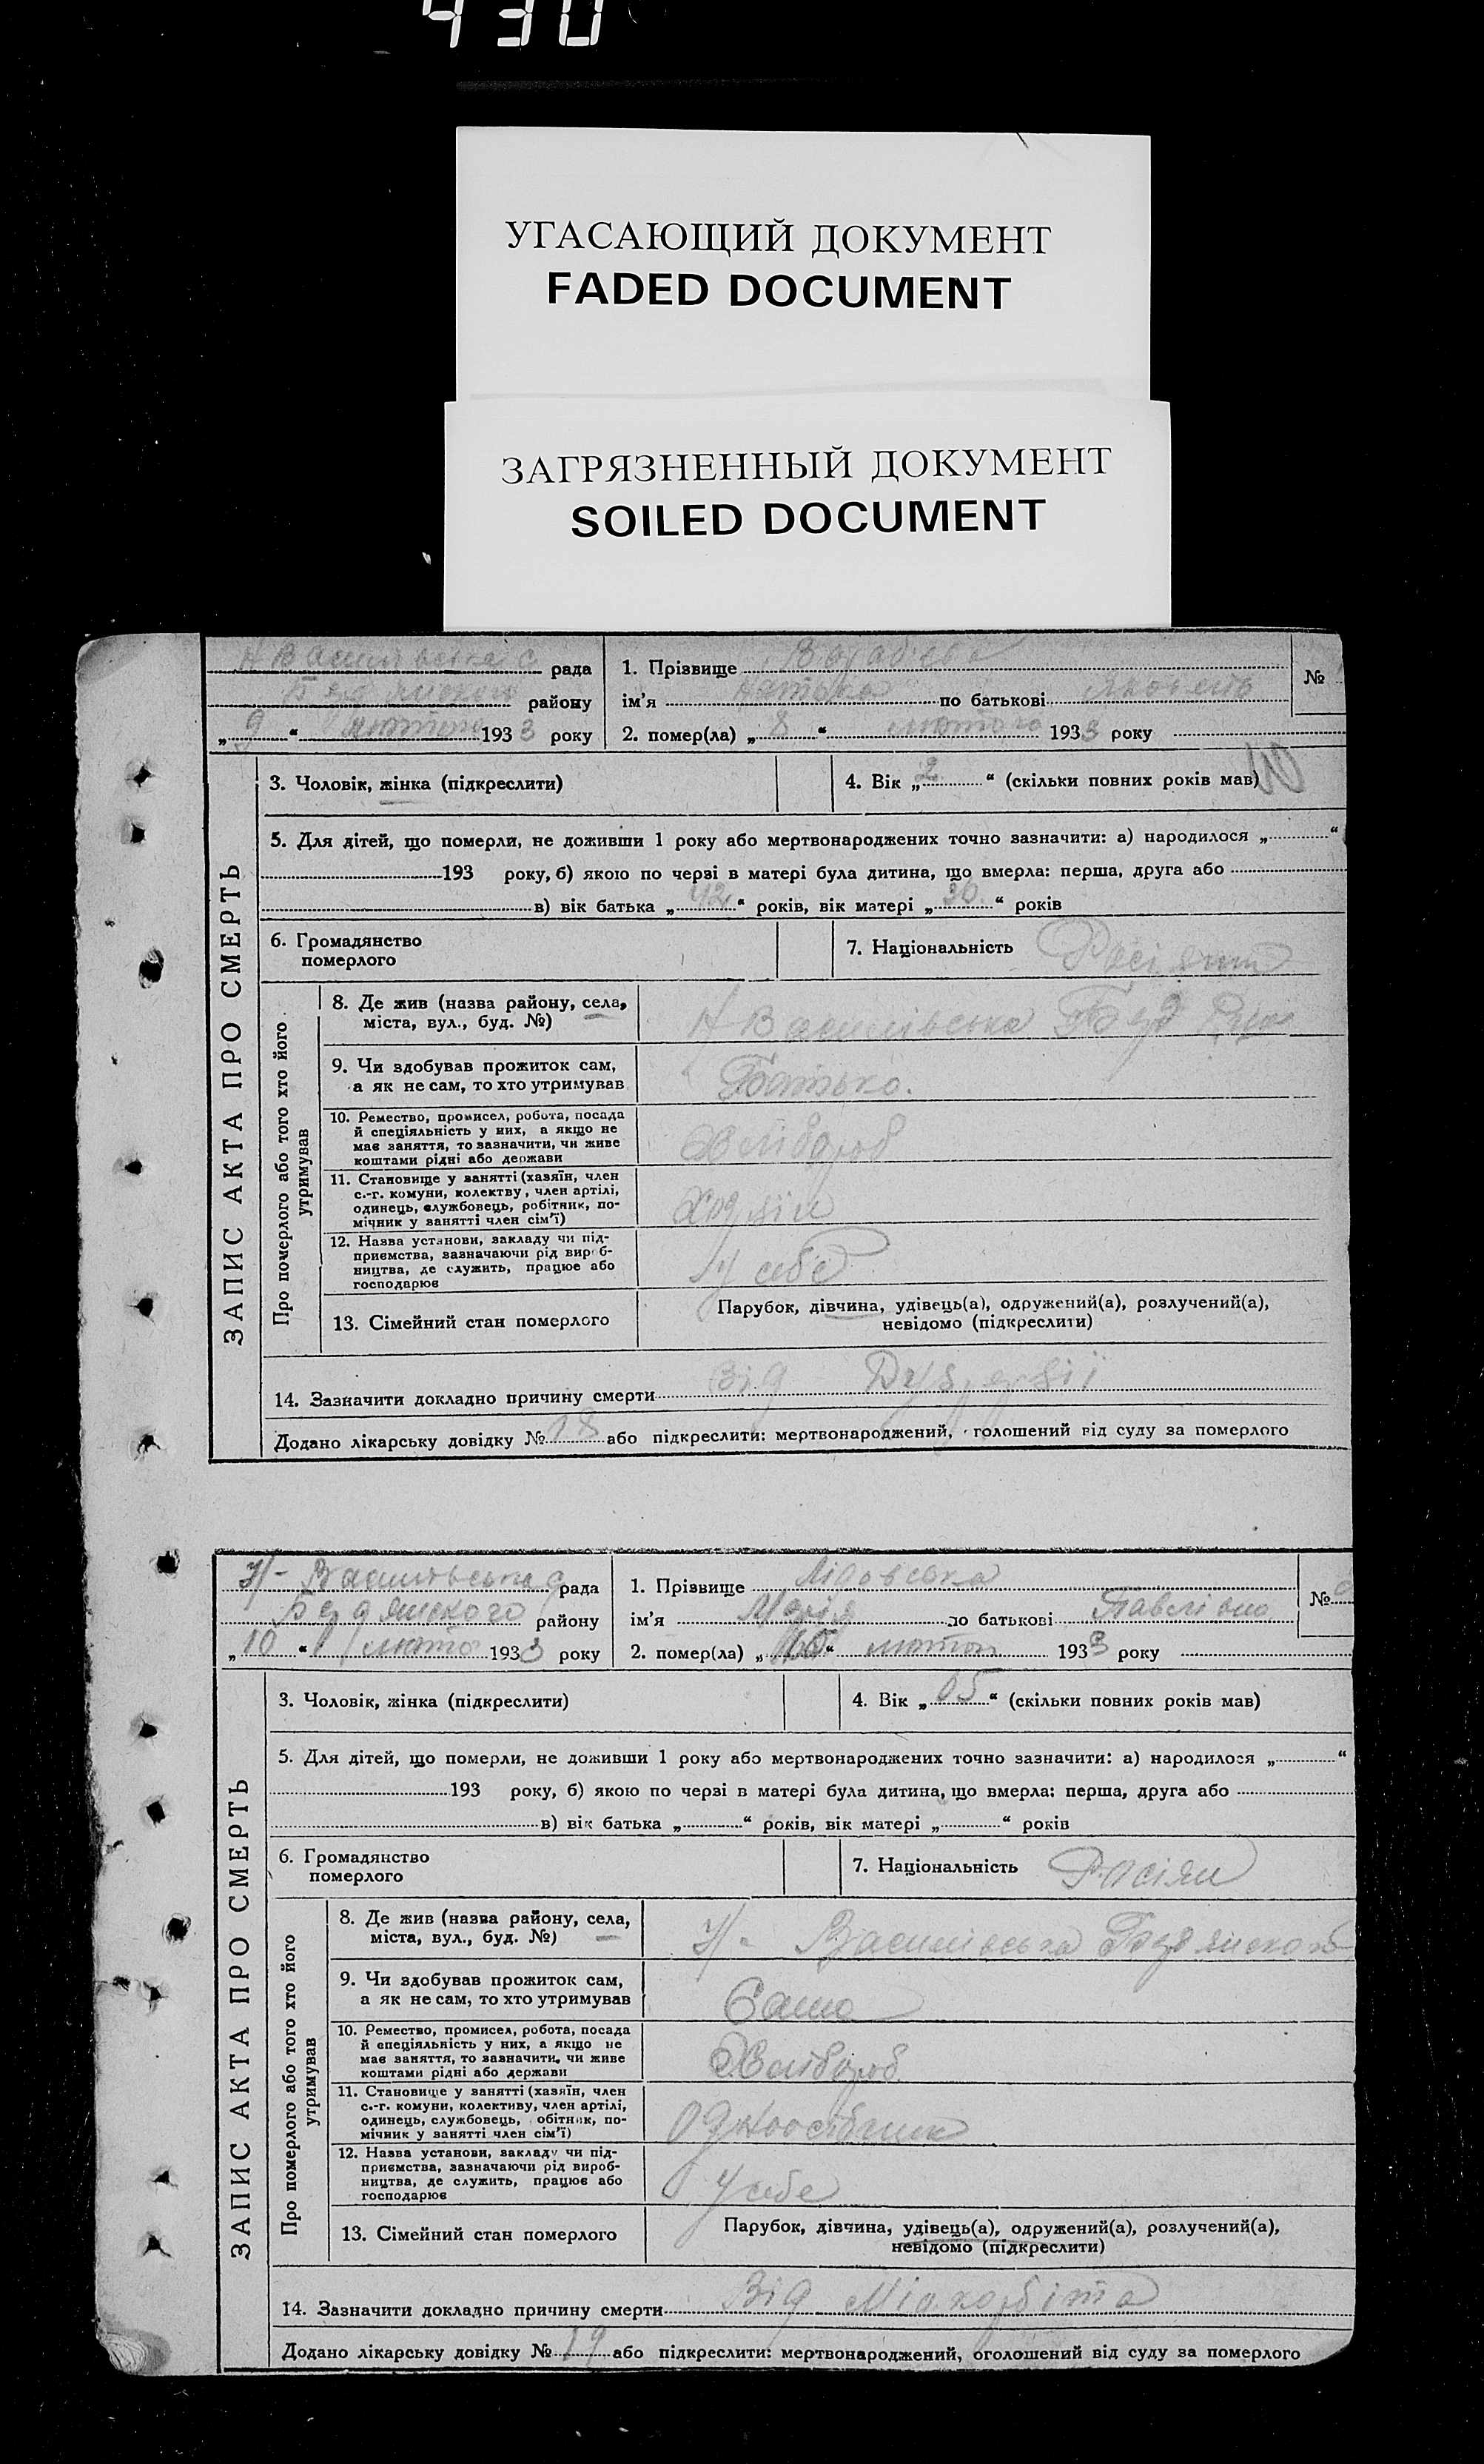 430
УГАСАЮЩИЙ ДОКУМЕНТ
FADED DOCUMENT
ЗАГРЯЗНЕННЫЙ ДОКУМЕНТ
SOILED DOCUMENT
рада
району
„ 9 “ лютого 1933 року
1. Прізвище
№
ім'я по батькові
2. помер(ла) „ 8 “ лютого 1933 року
ЗАПИС АКТА ПРО СМЕРТЬ
3. Чоловік, жінка (підкреслити)
4. Вік „ 2 “ (скільки повних років мав)
5. Для дітей, що померли, не доживши 1 року або мертвонароджених точно зазначити: а) народилося „ “
193 року, б) якою по черзі в матері була дитина, що вмерла: перша, друга або
в) вік батька „ 42 “ років, вік матері „ “ років
6. Громадянство
померлого
7. Національність
Про померлого або того хто його
утримував
8. Де жив (назва району, села,
міста, вул., буд. №)
9. Чи здобував прожиток сам,
а як не сам, то хто утримував
Батько.
10. Ремество, промисел, робота, посада
й спеціяльність у них, а якщо не
має заняття, то зазначити, чи живе
коштами рідні або держави
Хлібороб
11. Становище у занятті (хазяїн, член
с.-г. комуни, колектву, член артілі,
одинець, службовець, робітник, по-
мічник у занятті член сім'ї)
12. Назва установи, закладу чи під-
приємства, зазначаючи рід вироб-
ництва, де служить, працює або
господарює
У себе
13. Сімейний стан померлого
Парубок, дівчина, удівець(а), одружений(а), розлучений(а),
невідомо (підкреслити)
14. Зазначити докладно причину смерти Від
Додано лікарську довідку № 18 або підкреслити: мертвонароджений, голошений від суду за померлого
рада
району
„ 10 “ 1933 року
1. Прізвище
№
ім'я Марія по батькові Павлівна
2. помер(ла) „ “ 1933 року
ЗАПИС АКТА ПРО СМЕРТЬ
3. Чоловік, жінка (підкреслити)
4. Вік „ “ (скільки повних років мав)
5. Для дітей, що померли, не доживши 1 року або мертвонароджених точно зазначити: а) народилося „ “
193 року, б) якою по черзі в матері була дитина, що вмерла: перша, друга або
в) вік батька „ “ років, вік матері „ “ років
6. Громадянство
померлого
7. Національність Росіян
Про померлого або того хто його
утримував
8. Де жив (назва району, села,
міста, вул., буд. №)
9. Чи здобував прожиток сам,
а як не сам, то хто утримував
Сама
10. Ремество, промисел, робота, посада
й спеціяльність у них, а якщо не
має заняття, то зазначити, чи живе
коштами рідні або держави
Хлібороб
11. Становище у занятті (хазяїн, член
с.-г. комуни, колективу, член артілі,
одинець, службовець, обітник, по-
мічник у занятті член сім'ї)
Одноосібник
12. Назва установи, закладу чи під-
приємства, зазначаючи рід вироб-
ництва, де служить, працює або
господарює
У себе
13. Сімейний стан померлого
Парубок, дівчина, удівець(а), одружений(а), розлучений(а),
невідомо (підкреслити)
14. Зазначити докладно причину смерти Від
Додано лікарську довідку № 19 або підкреслити: мертвонароджений, оголошений від суду за померлого